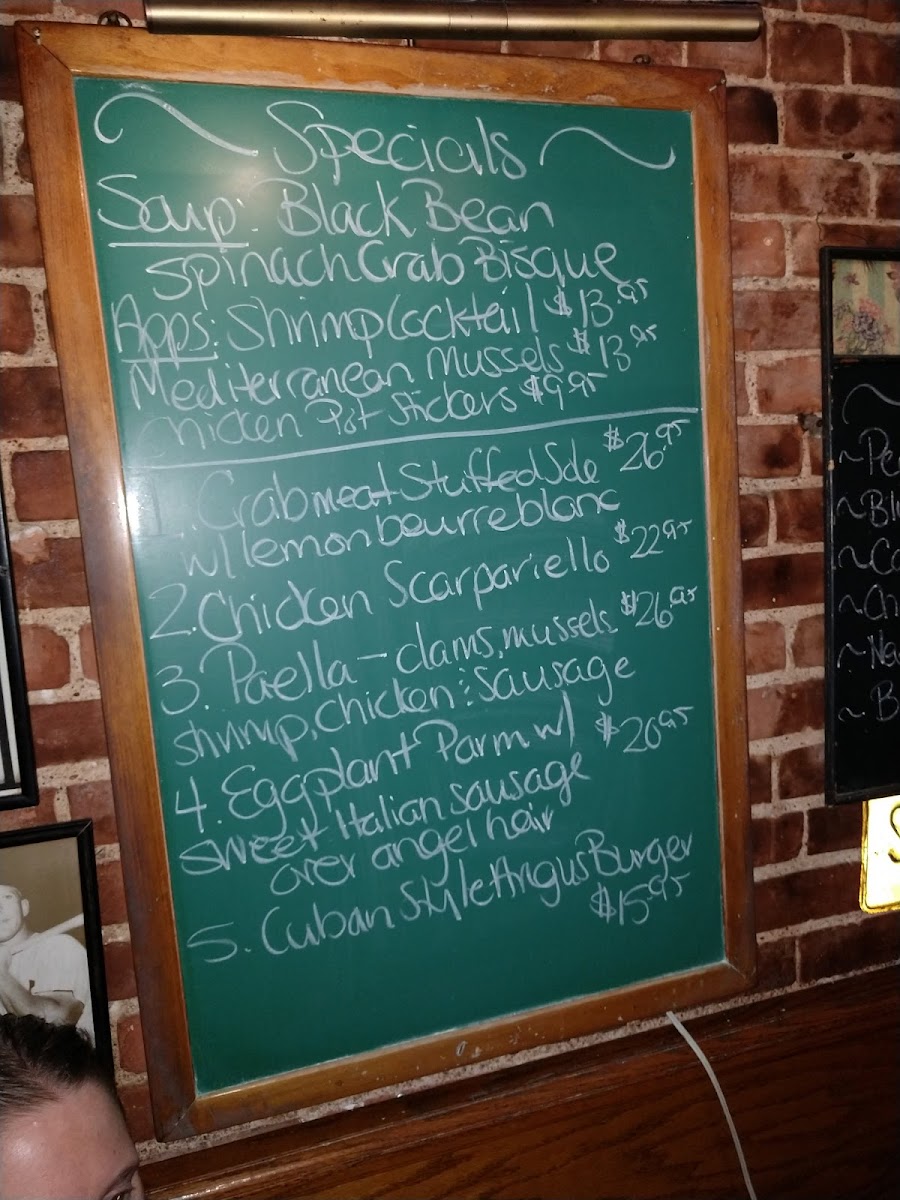 Specials
Soup: Black Bean
Spinach Crab Bisque
Apps: Shrimp Cocktail $13.95
Mediterranean Mussels $13.95
Chicken Pot Stickers $9.95
1. Crabmeat Stuffed Sole $26.95
w/ lemon beurre blanc
2. Chicken Scarpariello $22.95
3. Paella - clams, mussels $26.95
shrimp, chicken : sausage
4. Eggplant Parm w/ $20.95
sweet Italian sausage
over angel hair
5. Cuban Style Angus Burger
$15.95